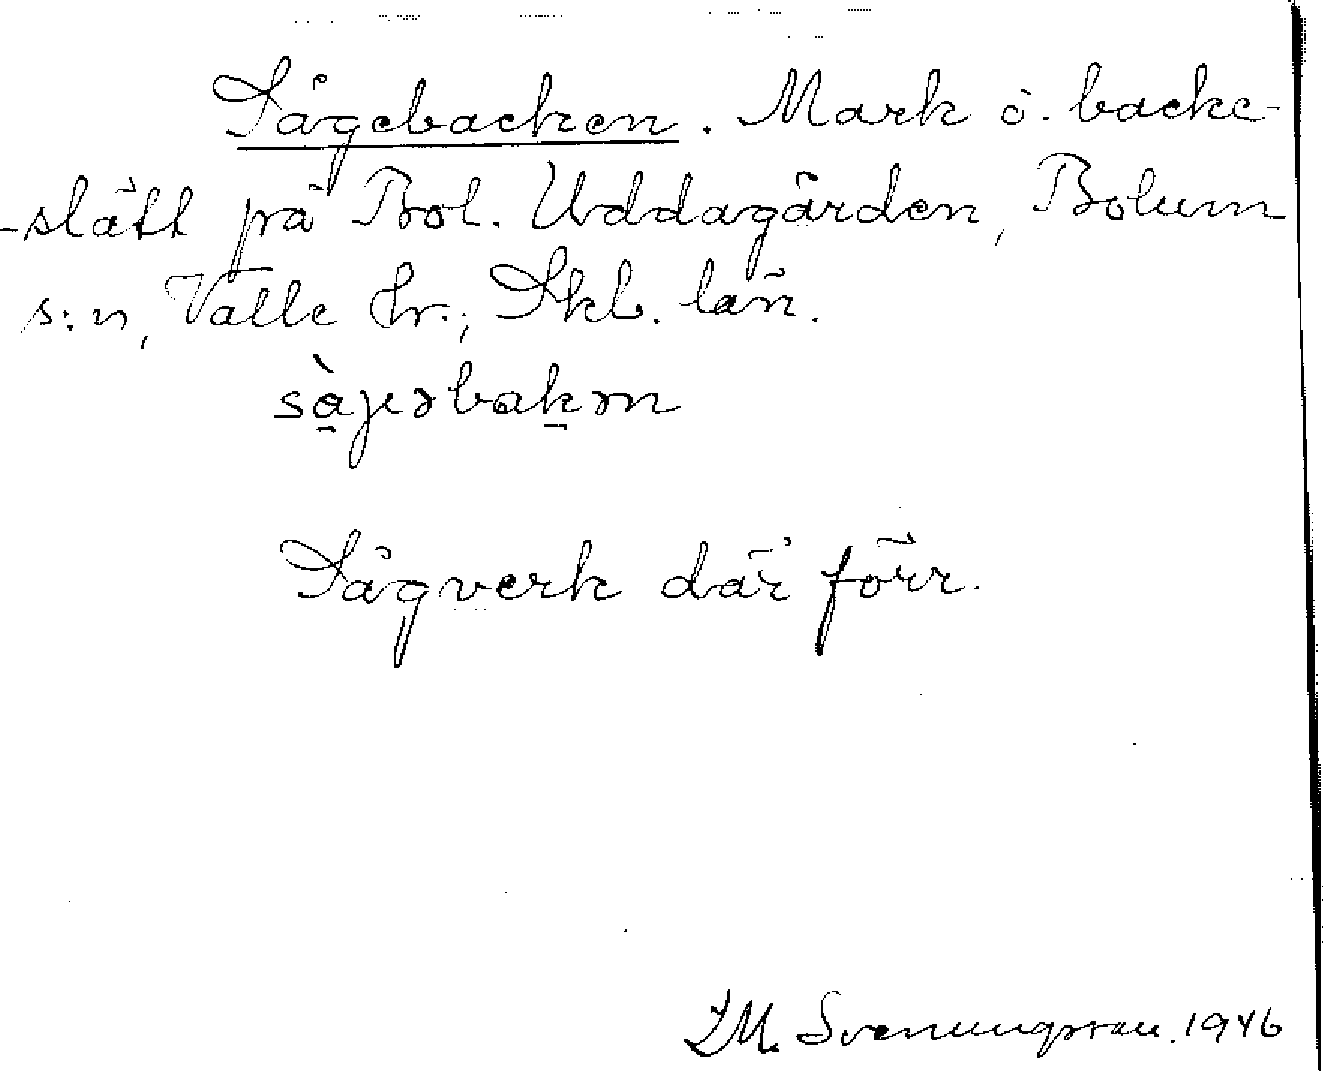 Sågebacken. Mark o. backe-
-slätt på Bol. Uddagården, Bolum
s:n, Valle hr., Skb. län.
sàgəbakən
Sågverk där förr.
Svenungsson. 1946